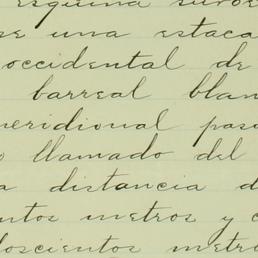 esquina suroe
se una estaca
occidental de
barreal blan
meridional pasa
o llamado del
a distancia d
entos metros y c
doscientos metro